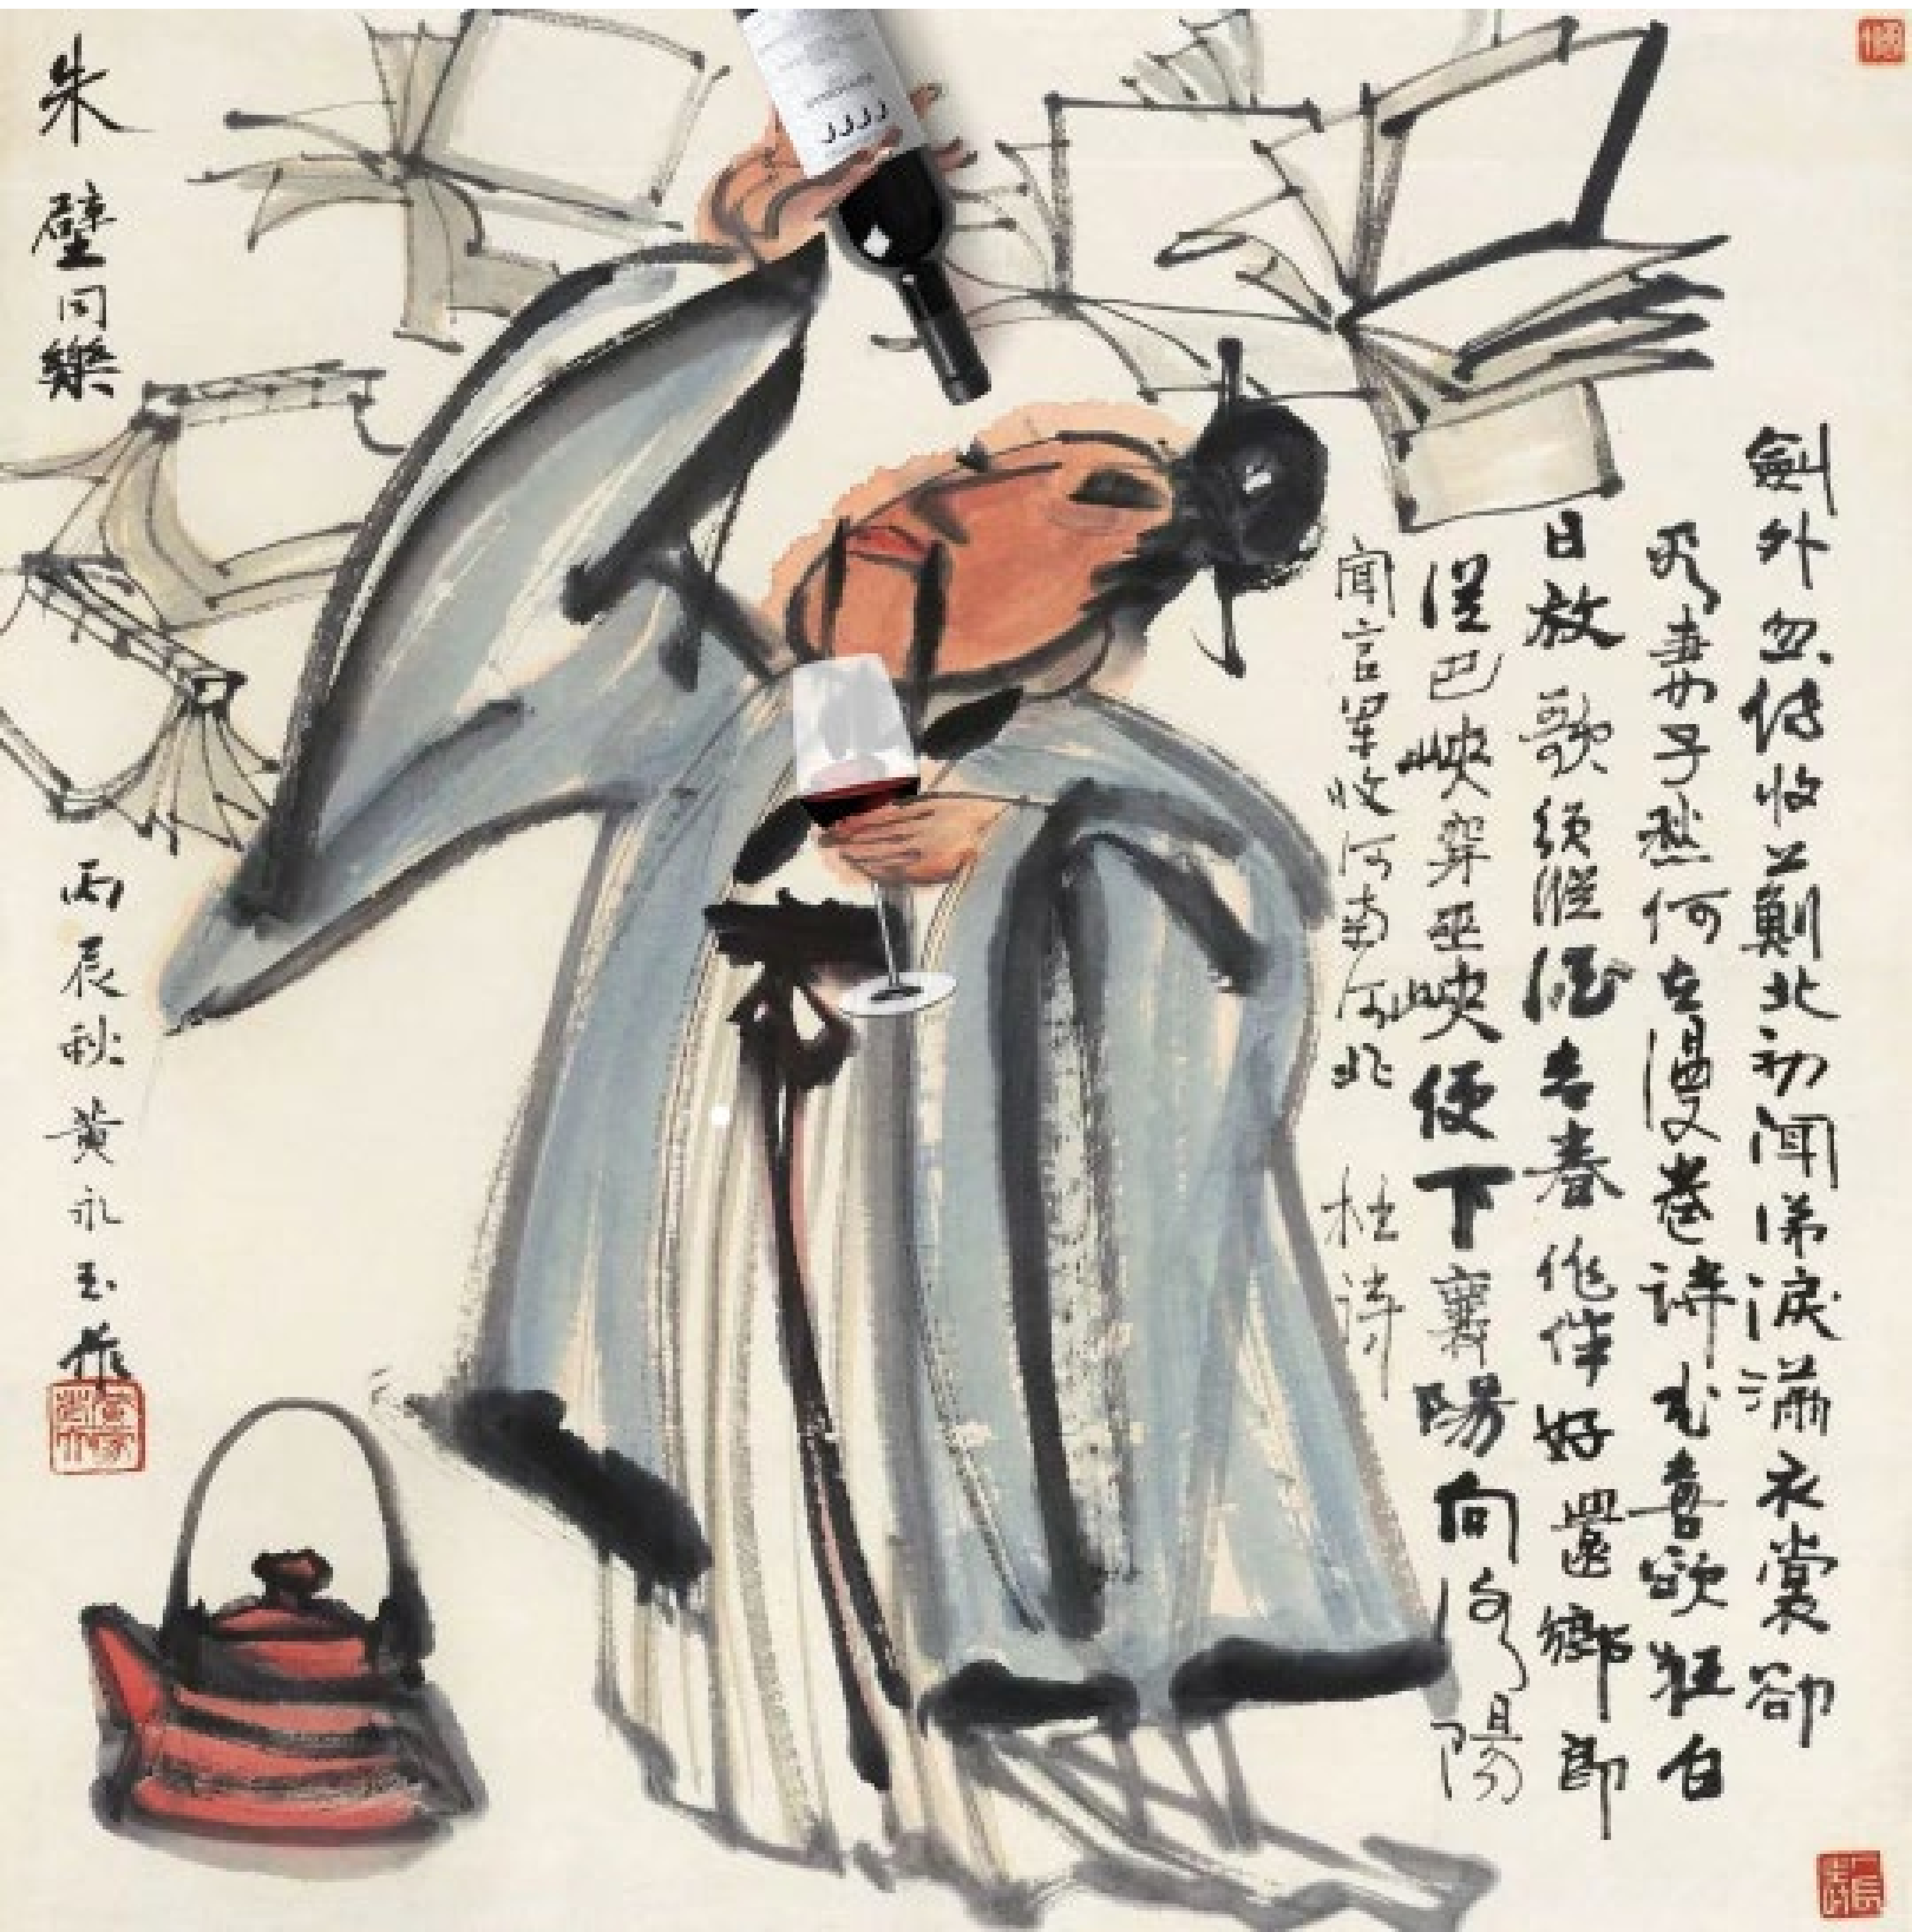 劍外忽傳收薊北初聞涕淚滿衣裳卻
看妻子愁何在漫卷詩書喜欲狂白
日放歌須縱酒青春作伴好還鄉即
從巴峽穿巫峽便下襄陽向洛陽
聞官軍收河南河北 杜詩
朱璧同樂
丙辰秋黃永玉作